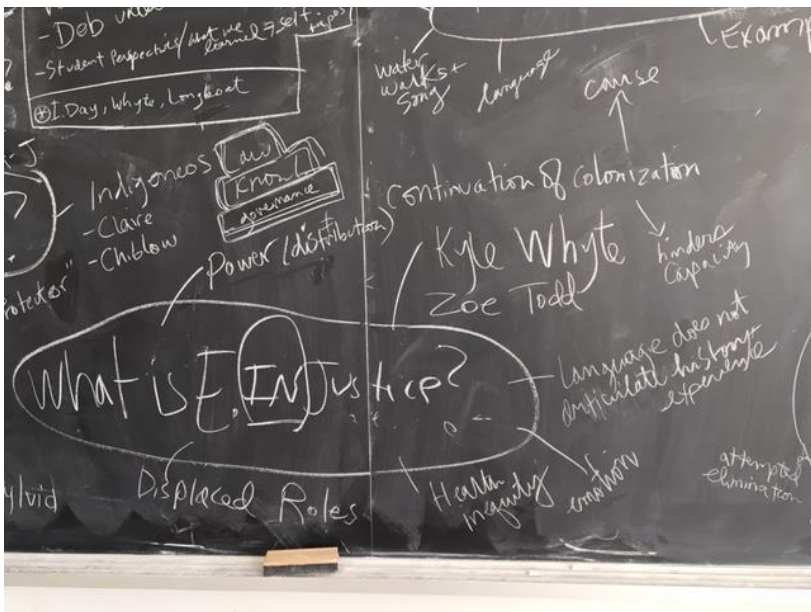 - Deb
- Student Perspectives/what we learned → self
⊛ I. Day, Whyte, Longboat
Water
Walks +
Song
language
Examp
cause
- J
Indigenous
- Clare
- Chiblow
law
Know
governance
Continuation of Colonization
hinders
Capacity
Power (distribution)
Kyle Whyte
Zoe Todd
Protector"
What is E. INJustice?
Language does not
articulate history +
experience
Displaced Roles
Health
inequity
emotion
attempted
elimination